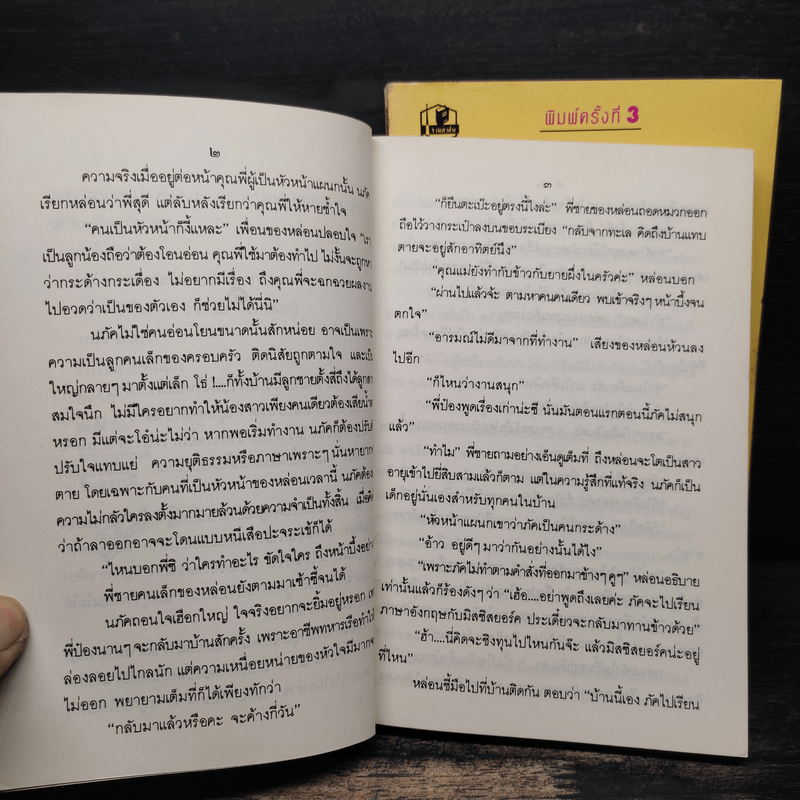 ๒
ความจริงเมื่ออยู่ต่อหน้าคุณพี่ผู้เป็นหัวหน้าแผนกนั้น นภัค
เรียกหล่อนว่าพี่สุดี แต่ลับหลังเรียกว่าคุณพี่ให้หายช้ำใจ
“คนเป็นหัวหน้าก็งี้แหละ” เพื่อนของหล่อนปลอบใจ “เรา
เป็นลูกน้องถือว่าต้องโอนอ่อน คุณพี่ใช้มาต้องทำไป ไม่งั้นจะถูกหา
ว่ากระด้างกระเดื่อง ไม่อยากมีเรื่อง ถึงคุณพี่จะฉกฉวยผลงาน
ไปอวดว่าเป็นของตัวเอง ก็ช่วยไม่ได้นี่นิ”
นภัคไม่ใช่คนอ่อนโยนขนาดนั้นสักหน่อย อาจเป็นเพราะ
ความเป็นลูกคนเล็กของครอบครัว ติดนิสัยถูกตามใจ และเป็น
ใหญ่กลายๆ มาตั้งแต่เล็ก โธ่ !....ก็ทั้งบ้านมีลูกชายตั้งสี่ถึงได้ลูกสาว
สมใจนึก ไม่มีใครอยากทำให้น้องสาวเพียงคนเดียวต้องเสียน้ำ
หรอก มีแต่จะโอ๋น่ะไม่ว่า หากพอเริ่มทำงาน นภัคก็ต้องปรับตัว
ปรับใจแทบแย่ ความยุติธรรมหรือภาษาเพราะๆ นั่นหายาก
ตาย โดยเฉพาะกับคนที่เป็นหัวหน้าของหล่อนเวลานี้ นภัคต้อง
ความไม่กลัวใครลงตั้งมากมายล้วนด้วยความจำเป็นทั้งสิ้น เมื่อคิด
ว่าถ้าลาออกอาจจะโดนแบบหนีเสือปะจระเข้ก็ได้
“ไหนบอกพี่ซิ ว่าใครทำอะไร ขัดใจใคร ถึงหน้าบึ้งอย่าง
พี่ชายคนเล็กของหล่อนยังตามมาเซ้าซี้จนได้
นภัคถอนใจเฮือกใหญ่ ใจจริงอยากจะยิ้มอยู่หรอก
พี่ป๋องนานๆ จะกลับมาบ้านสักครั้ง เพราะอาชีพทหารเรือทำให้
ล่องลอยไปไกลนัก แต่ความเหนื่อยหน่ายของหัวใจมีมากจน
ไม่ออก พยายามเต็มที่ก็ได้เพียงทักว่า
“กลับมาแล้วหรือคะ จะค้างกี่วัน”
พิมพ์ครั้งที่ 3
๓
“ก็ยืนตะเบ๊ะอยู่ตรงนี้ไงล่ะ” พี่ชายของหล่อนถอดหมวกออก
ถือไว้วางกระเป๋าลงบนขอบระเบียง “กลับจากทะเล คิดถึงบ้านแทบ
ตายจะอยู่สักอาทิตย์นึง”
“คุณแม่ยังทำกับข้าวกับยายผึ่งในครัวค่ะ” หล่อนบอก
“ผ่านไปแล้วจ้ะ ตามหาคนคนเดียว พบเข้าจริงๆ หน้าบึ้งจน
ตกใจ”
“อารมณ์ไม่ดีมาจากที่ทำงาน” เสียงของหล่อนห้วนลง
ไปอีก
“ก็ไหนว่างานสนุก”
“พี่ป๋องพูดเรื่องเก่าน่ะซี นั่นมันตอนแรกตอนนี้ภัคไม่สนุก
แล้ว”
“ทำไม” พี่ชายถามอย่างเอ็นดูเต็มที่ ถึงหล่อนจะโตเป็นสาว
อายุเข้าไปยี่สิบสามแล้วก็ตาม แต่ในความรู้สึกที่แท้จริง นภัคก็เป็น
เด็กอยู่นั่นเองสำหรับทุกคนในบ้าน
“หัวหน้าแผนกเขาว่าภัคเป็นคนกระด้าง”
“อ้าว อยู่ดีๆ มาว่ากันอย่างนั้นได้ไง”
“เพราะภัคไม่ทำตามคำสั่งที่ออกมาข้างๆ คูๆ” หล่อนอธิบาย
เท่านั้นแล้วก็ร้องดังๆ ว่า “เฮ้อ....อย่าพูดถึงเลยค่ะ ภัคจะไปเรียน
ภาษาอังกฤษกับมิสซิสยอร์ค ประเดี๋ยวจะกลับมาทานข้าวด้วย”
“ฮ้า....นี่คิดจะชิงทุนไปไหนกันจ๊ะ แล้วมิสซิสยอร์คน่ะอยู่
ที่ไหน”
หล่อนชี้มือไปที่บ้านติดกัน ตอบว่า “บ้านนี้เอง ภัคไปเรียน